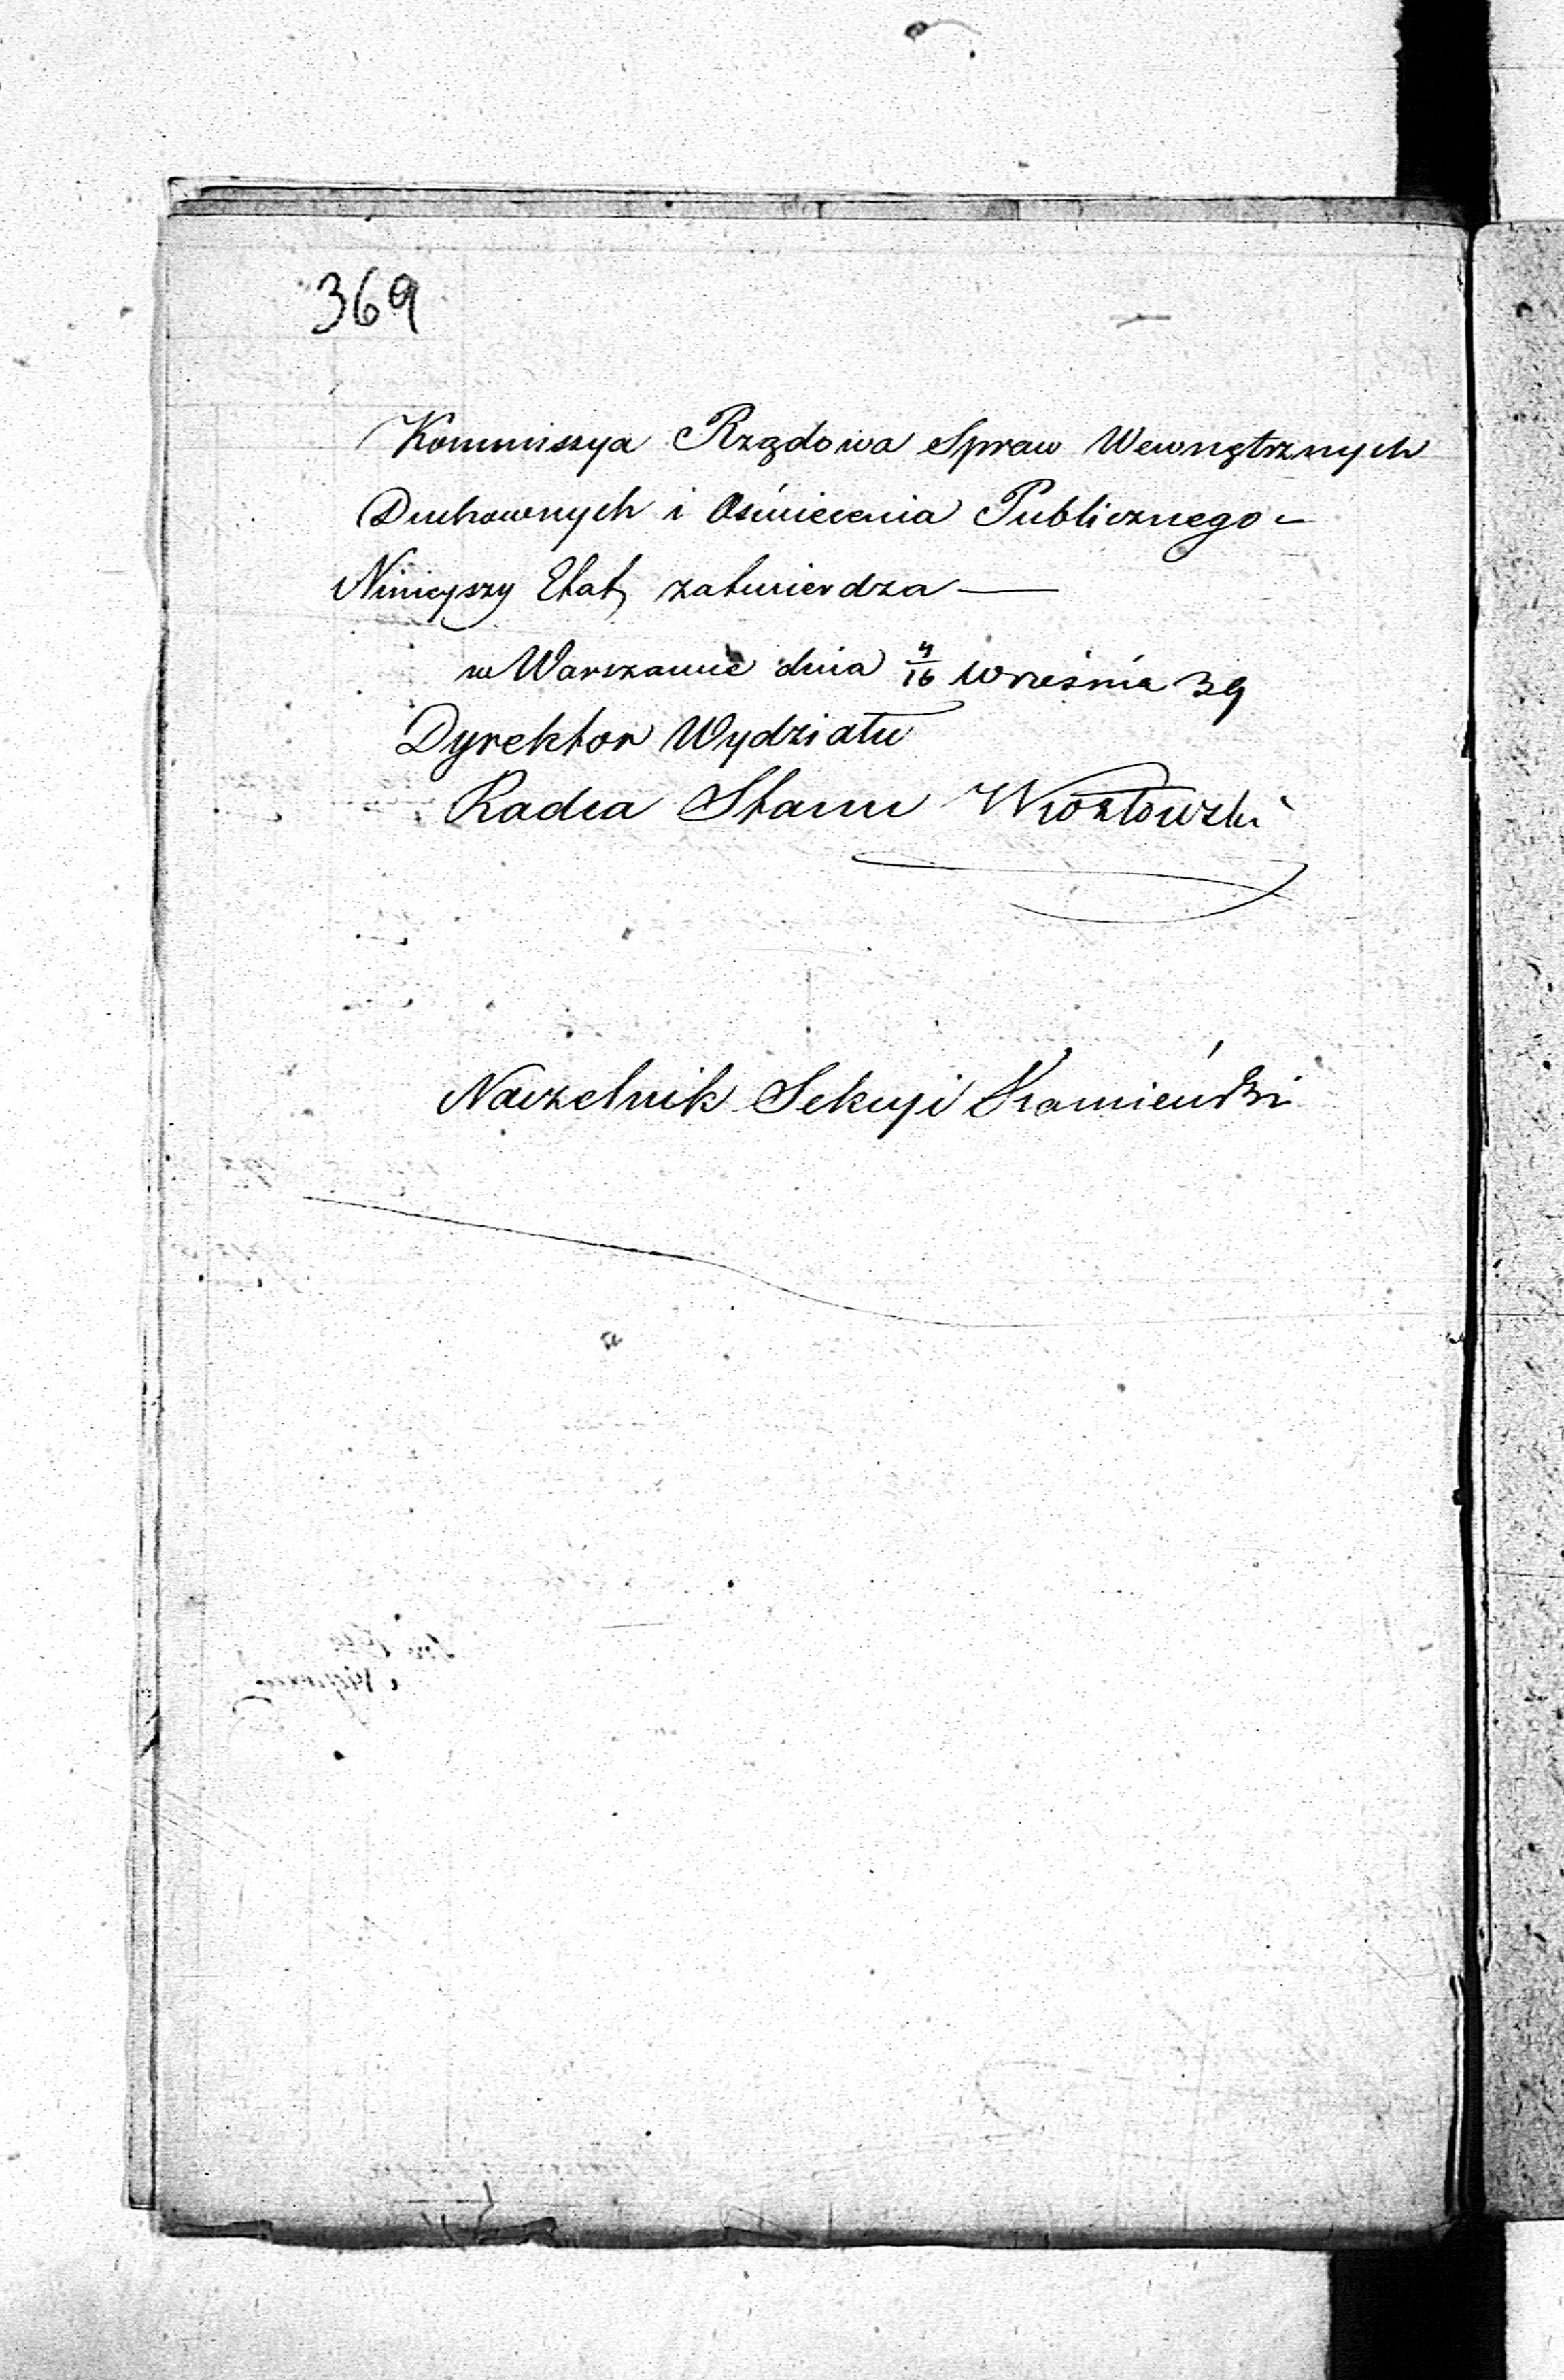 369
Kommissya Rządowa Spraw Wewnętrznych
Duchownych i Oświecenia Publicznego –
Ninieyszy Etat zatwierdza —
w Warszawie dnia 4/16 Września 39
Dyrektor Wydziału
Radca Stanu
Naczelnik Sekcyi Kamieński